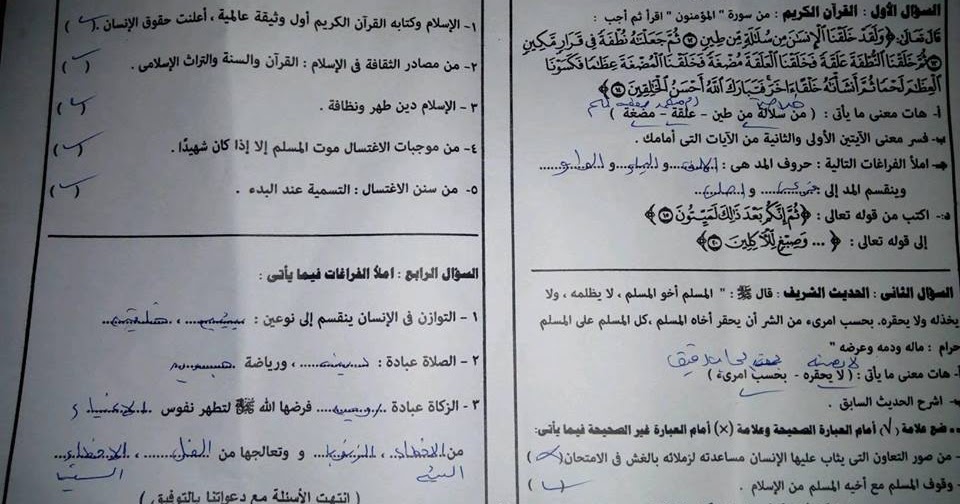 السؤال الأول : القرآن الكريم : من سورة " المؤمنون " اقرأ ثم أجب :
قال تعالى: ﴿وَلَقَدْ خَلَقْنَا الْإِنسَانَ مِن سُلَالَةٍ مِّن طِينٍ ۝١٢ ثُمَّ جَعَلْنَاهُ نُطْفَةً فِي قَرَارٍ مَّكِينٍ
۝١٣ ثُمَّ خَلَقْنَا النُّطْفَةَ عَلَقَةً فَخَلَقْنَا الْعَلَقَةَ مُضْغَةً فَخَلَقْنَا الْمُضْغَةَ عِظَامًا فَكَسَوْنَا
الْعِظَامَ لَحْمًا ثُمَّ أَنشَأْنَاهُ خَلْقًا آخَرَ فَتَبَارَكَ اللَّهُ أَحْسَنُ الْخَالِقِينَ ۝١٤﴾
أ- هات معنى ما يأتى : ( من سلالة من طين - علقة - مضغة )
ب- فسر معنى الآيتين الأولى والثانية من الآيات التى أمامك .
جـ- املأ الفراغات التالية : حروف المد هى : الالف و الياء و الواو
وينقسم المد إلى ........ و ........
د- اكتب من قوله تعالى : ﴿ثُمَّ إِنَّكُم بَعْدَ ذَٰلِكَ لَمَيِّتُونَ ۝١٥﴾
إلى قوله تعالى : ﴿ ... وَصِبْغٍ لِّلْآكِلِينَ ۝٢٠﴾
السؤال الثانى : الحديث الشريف : قال ﷺ : " المسلم أخو المسلم ، لا يظلمه ، ولا
يخذله ولا يحقره. بحسب امرىء من الشر أن يحقر أخاه المسلم ،كل المسلم على المسلم
حرام : ماله ودمه وعرضه "
أ- هات معنى ما يأتى : ( لا يحقره - بحسب امرىء )
ب- اشرح الحديث السابق .
** ضع علامة (√) أمام العبارة الصحيحة وعلامة (×) أمام العبارة غير الصحيحة فيما يأتى:
- من صور التعاون التى يثاب عليها الإنسان مساعدته لزملائه بالغش فى الامتحان(×)
- وقوف المسلم مع أخيه المسلم من الإسلام . (√)
١- الإسلام وكتابه القرآن الكريم أول وثيقة عالمية ، أعلنت حقوق الإنسان .(√)
٢- من مصادر الثقافة فى الإسلام : القرآن والسنة والتراث الإسلامى . (√)
٣ - الإسلام دين طهر ونظافة . (√)
٤- من موجبات الاغتسال موت المسلم إلا إذا كان شهيدًا . (√)
٥- من سنن الاغتسال : التسمية عند البدء . (√)
السؤال الرابع : املأ الفراغات فيما يأتى :
١ - التوازن فى الإنسان ينقسم إلى نوعين : ........ ، ........
٢ - الصلاة عبادة : ........ ، ورياضة ........
٣ - الزكاة عبادة ........ فرضها الله ﷻ لتطهر نفوس الاغنياء
من ........ ، ........ و وتعالجها من ........ ، ........
( انتهت الأسئلة مع دعواتنا بالتوفيق )